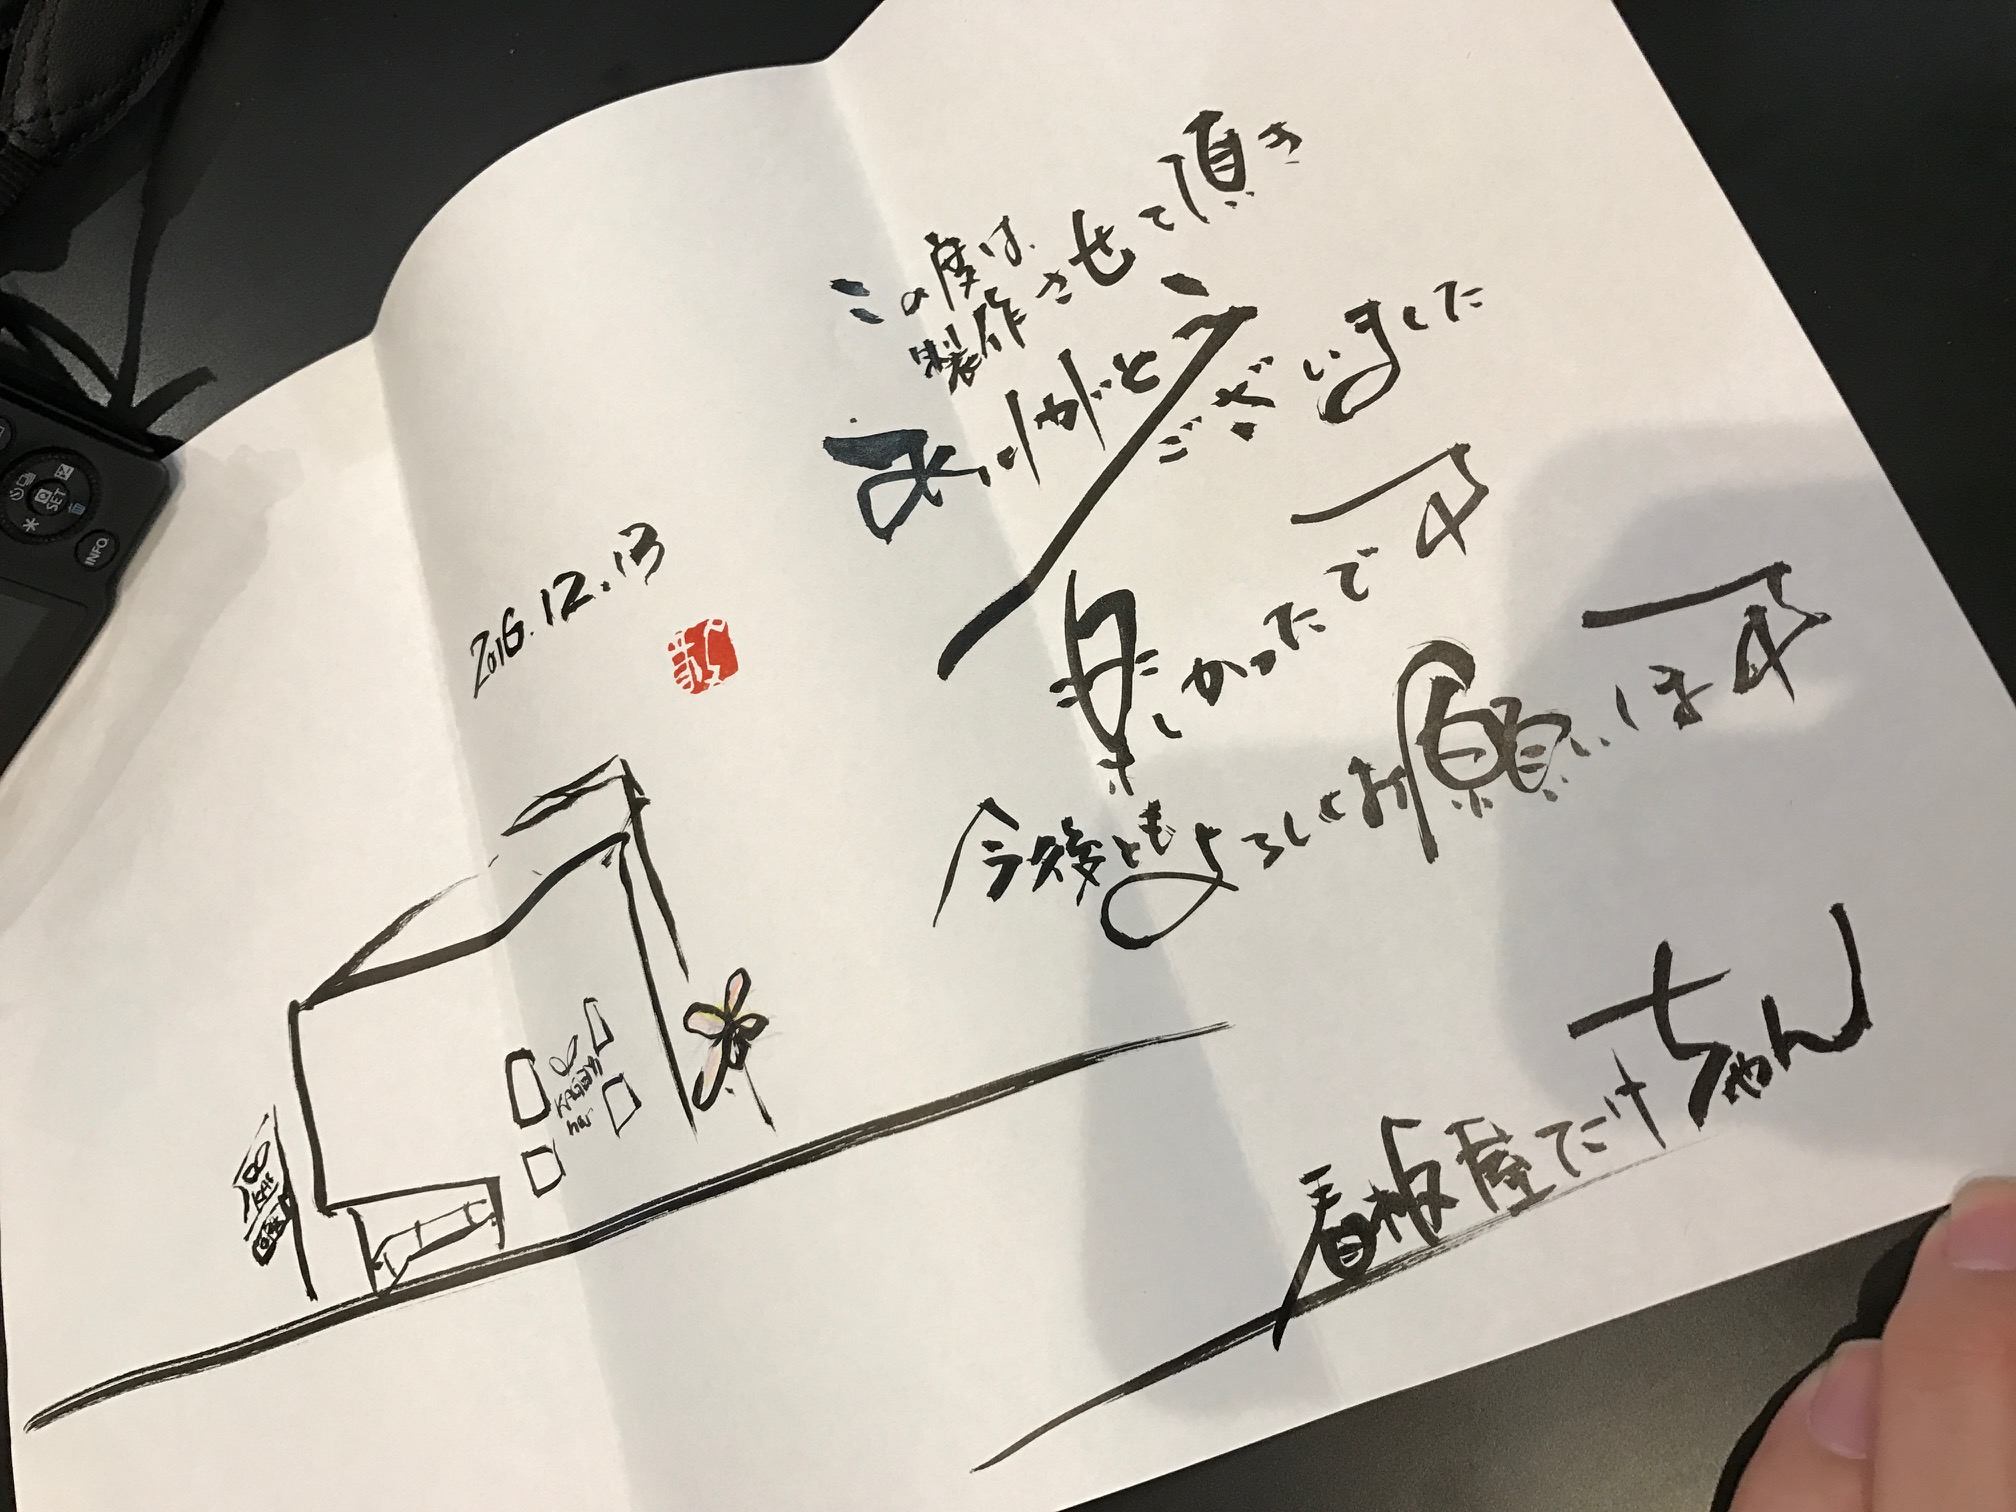 この度は
製作させて頂き
ありがとう
ございました
楽しかったです
今後ともよろしくお願いします
看板屋たけちゃん
2016.12.13
SET
INFO.